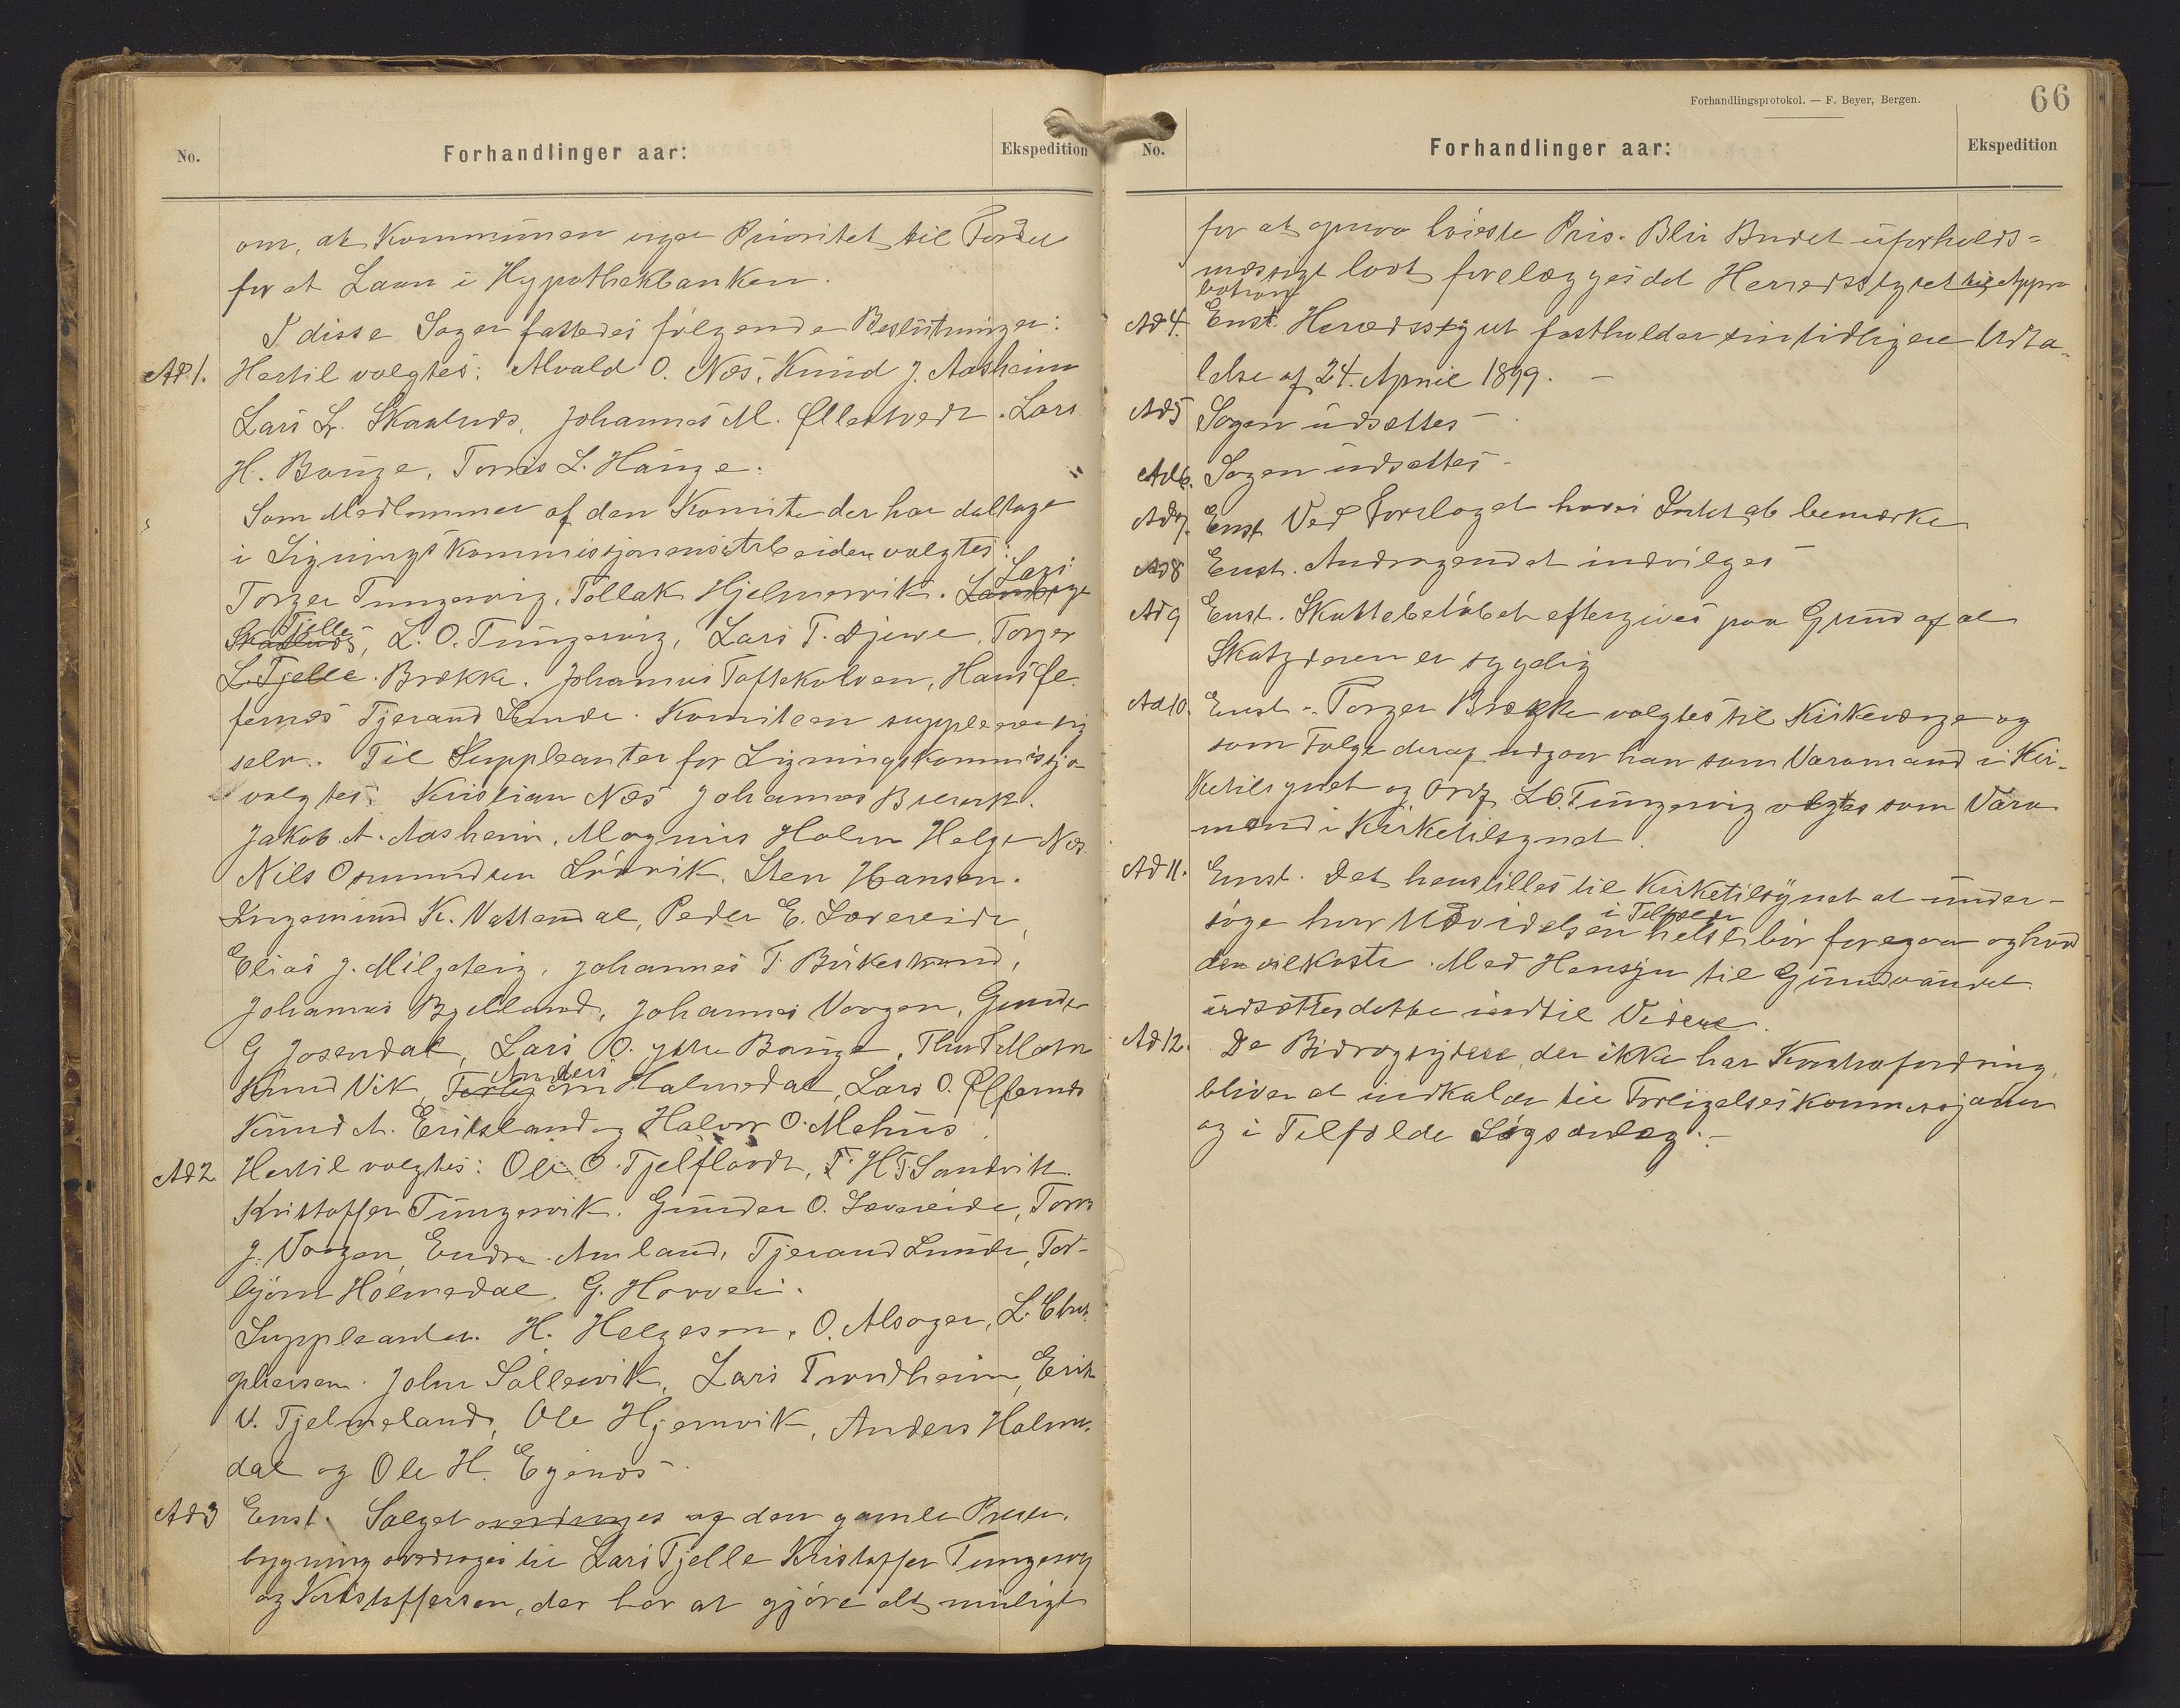 No.
Forhandlinger aar:
Ekspedition
om, at Kommunen viger Prioritet til Fordel
for et Laan i Hypothekbanken.
I disse Sager fattedes følgende Beslutninger:
Ad 1. Hertil valgtes: Alvald O. Næs, Knud J. Aasheim
Lars L. Skaaluds, Johannes M. Øllestvedt. Lars
H. Bauge, Torris L. Hauge.
Som Medlemmer af den Komite der har deltage
i Ligningskommissjonens Arbeider valgtes:
Torger Tungesvig, Tollak Hjelmervik. Lars
Tjelle, L. O. Tungesvig, Lars T. Djuve, Torger
L. Tjelle. Brekke. Johannes Toftekalven, Hans Øl
fernæs Tjerand Lunde. Komiteen supplerer sig
selv. Til Suppleanter for Ligningskommissjo
valgtes: Kristian Næs Johannes
Jakob A. Aasheim, Magnus Holm Helge Næs
Nils Osmundsen Lørvik, Sten Hansen.
Ingemund K. Vattendal, Peder E. Sævereide,
Elias J. Milzteig, Johannes T. Birkestrand,
Johannes Bjelland, Johannes Vaagen, Gunder
G Josendal, Lars O. ytre Bauge,
Knud Vik, Anders Halmedal, Lars O. Ølfernæs
Knud A. Eriksland og Halvor O. Mehus.
Ad 2 Hertil valgtes: Ole O. Tjelflaadt, T. H. T. Sandvik
Kristoffer Tungesvik. Gunder O. Sævereide, Torris
J. Vaagen, Endre Amland, Tjerand Lunde, Tor-
bjørn Holmedal, G. Horvei.
Suppleanter. H. Helgesen, O. Alsager, L. Chri
phersen. John Sallesvik, Lars Trondheim, Erik
V. Tjelmeland, Ole Hjemvik, Anders Halme-
dal og Ole H. Egenæs
Ad 3 Enst. Salget overdrages af den gamle Præste
bygning overdrages til Lars Tjelle Kristoffer Tungesvig
og Kristoffersen, der har at gjøre alt muligt
Forhandlingsprotokol. — F. Beyer, Bergen.
66
No.
Forhandlinger aar:
Ekspedition
for at opnaa høieste Pris. Blir Budet uforholds=
mæssigt lavt forelægges det Herredsstyret til Appro
bation
Ad 4. Enst. Herredsstyret fastholder sin tidligere Udta-
lelse af 24. April 1899. —
Ad 5 Sagen udsættes —
Ad 6. Sagen udsættes —
Ad 7. Enst Ved Forslaget haves Intet at bemærke
Ad 8 Enst. Andragendet indvilges
Ad 9 Enst. Skattebeløbet eftergives paa Grund af at
Skatyderen er sygelig
Ad 10. Enst. Torger Brekke valgtes til Kirkeværge og
som Følge deraf udgaar han som Varamand i Kir-
ketilsynet og Org. L O. Tungesvig valgtes som Vara
mand i Kirketilsynet.
Ad 11. Enst. Det henstilles til Kirketilsynet at under-
søge hvor Udvidelsen i Tilfælde helst bør foregaa og hvad
den vil koste. Med Hensyn til Gundvandet
udsættes dette indtil Videre.
Ad 12. De Bidragsydere, der ikke har Kontrafordring,
bliver at indkalde til Forligelseskommissjonen
og i Tilfælde Søgsanlæg. —